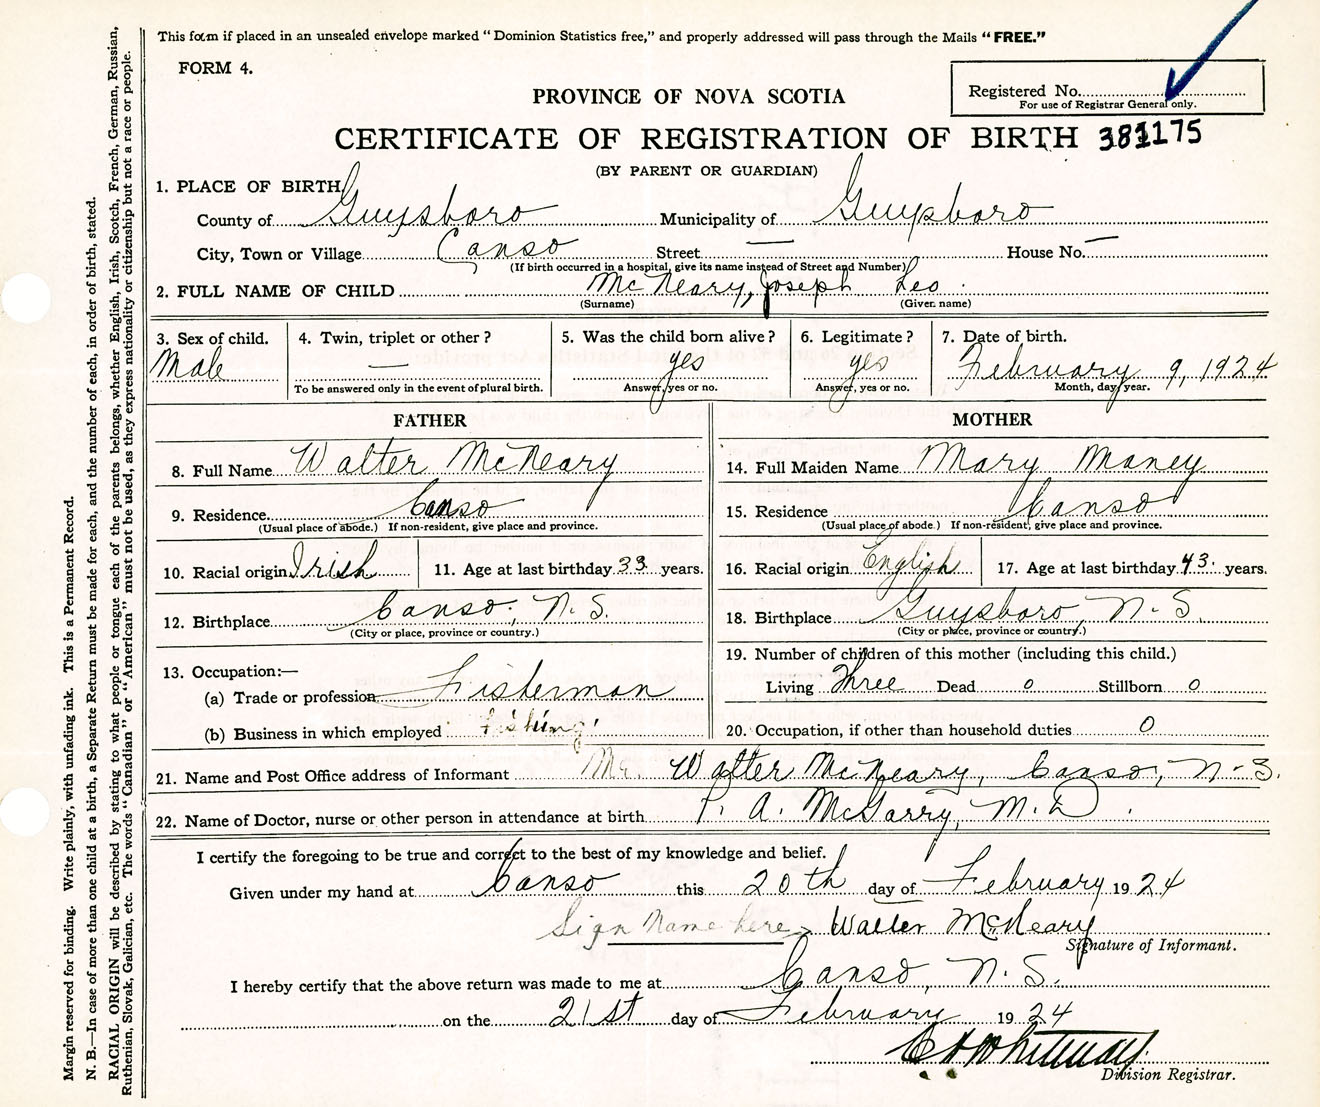 This form if placed in an unsealed envelope marked "Dominion Statistics free," and properly addressed will pass through the Mails "FREE."
FORM 4.
Registered No.
For use of Registrar General only.
PROVINCE OF NOVA SCOTIA
CERTIFICATE OF REGISTRATION OF BIRTH 381175
(BY PARENT OR GUARDIAN)
1. PLACE OF BIRTH
County of Guysboro Municipality of Guysboro
City, Town or Village Canso Street — House No. —
(If birth occurred in a hospital, give its name instead of Street and Number)
2. FULL NAME OF CHILD McNeary, Joseph Leo
(Surname) (Given name)
3. Sex of child. 4. Twin, triplet or other? 5. Was the child born alive? 6. Legitimate? 7. Date of birth.
Male — yes yes February 9, 1924
To be answered only in the event of plural birth. Answer, yes or no. Answer, yes or no. Month, day, year.
FATHER MOTHER
8. Full Name Walter McNeary 14. Full Maiden Name Mary Maney
9. Residence Canso 15. Residence Canso
(Usual place of abode.) If non-resident, give place and province. (Usual place of abode.) If non-resident, give place and province.
10. Racial origin Irish 11. Age at last birthday 33 years. 16. Racial origin English 17. Age at last birthday 43 years.
12. Birthplace Canso, N. S. 18. Birthplace Guysboro, N. S.
(City or place, province or country.) (City or place, province or country.)
13. Occupation:— 19. Number of children of this mother (including this child.)
(a) Trade or profession Fisherman Living Three Dead 0 Stillborn 0
(b) Business in which employed fishing 20. Occupation, if other than household duties 0
21. Name and Post Office address of Informant Mr. Walter McNeary, Canso, N-S.
22. Name of Doctor, nurse or other person in attendance at birth P. A. McGarry, M. D.
I certify the foregoing to be true and correct to the best of my knowledge and belief.
Given under my hand at Canso this 20th day of February 1924
Sign Name here Walter McNeary
Signature of Informant.
I hereby certify that the above return was made to me at Canso, N. S.
on the 21st day of February 1924
C H Whitman
Division Registrar.
Margin reserved for binding. Write plainly, with unfading ink. This is a Permanent Record.
N. B.—In case of more than one child at a birth, a Separate Return must be made for each, and the number of each, in order of birth, stated.
RACIAL ORIGIN will be described by stating to what people or tongue each of the parents belongs, whether English, Irish, Scotch, French, German, Russian,
Ruthenian, Slovak, Galician, etc. The words "Canadian" or "American" must not be used, as they express nationality or citizenship but not a race or people.